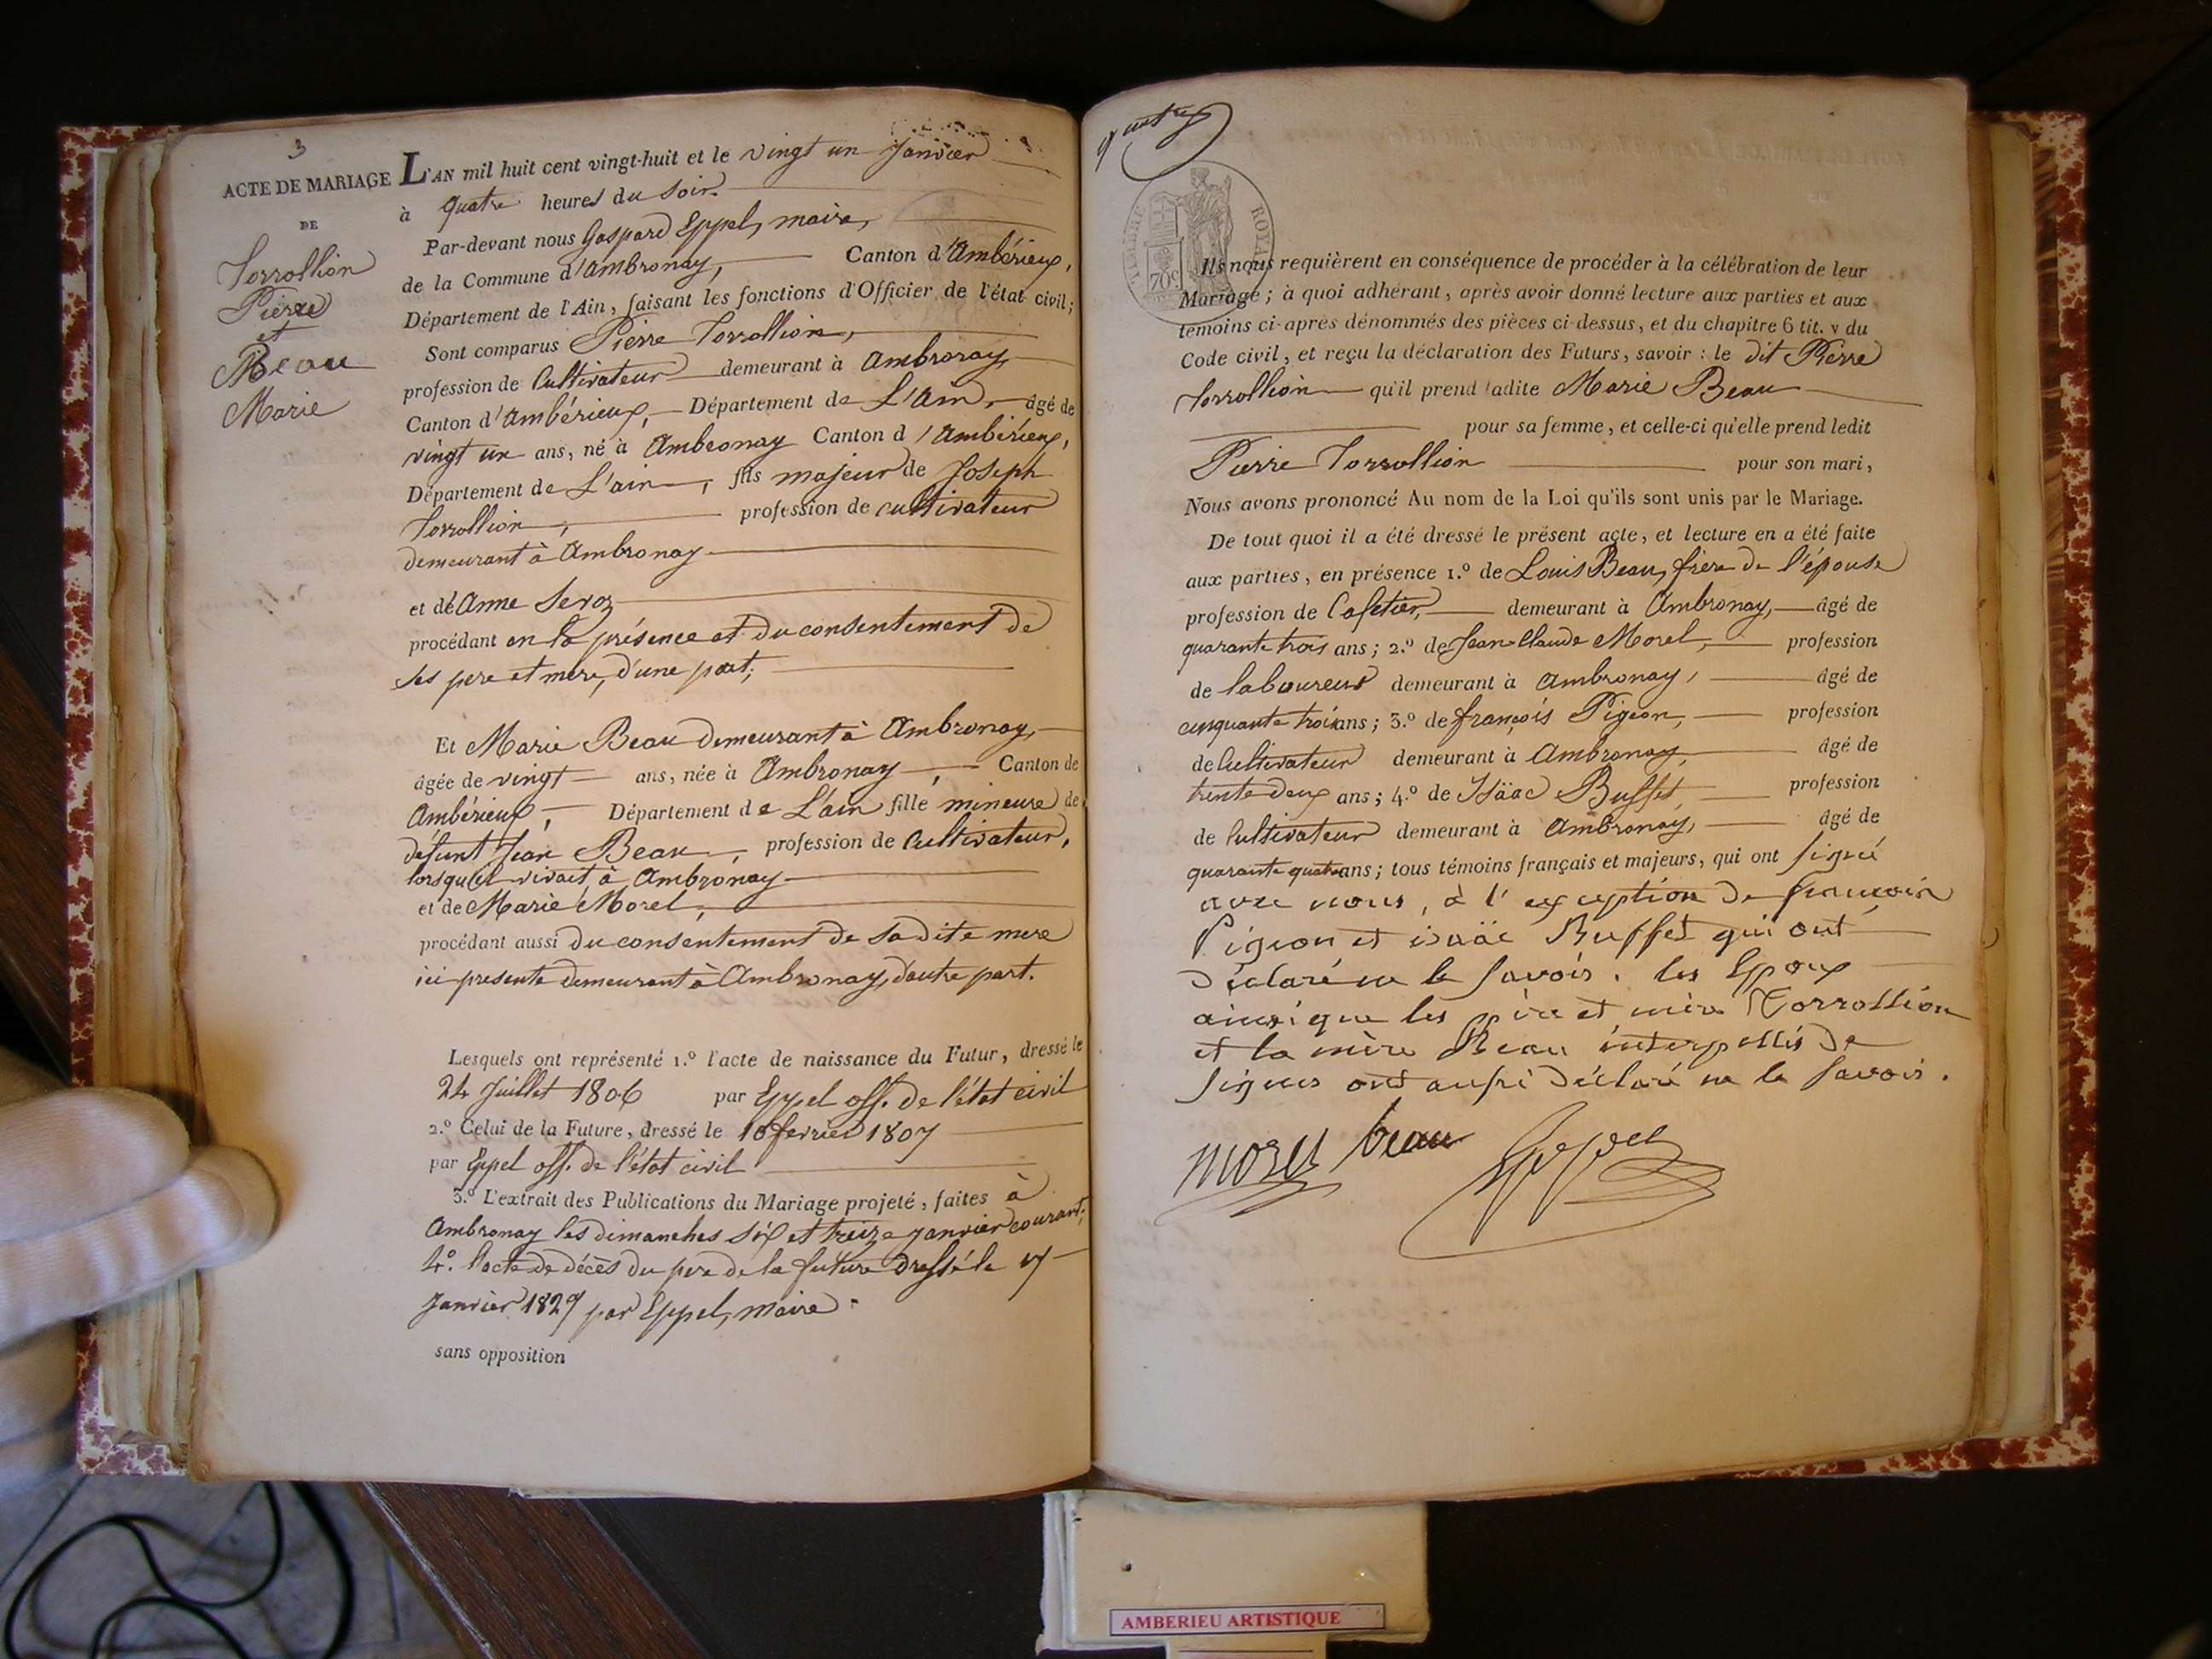 3
ACTE DE MARIAGE
DE
Torrollion
Pierre
et
Beau
Marie
L'AN mil huit cent vingt-huit et le vingt un Janvier
à quatre heures du soir.
Par-devant nous Gaspard Eppel, maire,
de la Commune d'Ambronay, Canton d'Ambérieux,
Département de l'Ain, faisant les fonctions d'Officier de l'état civil;
Sont comparus Pierre Torrollion,
profession de Cultivateur demeurant à Ambronay
Canton d'Ambérieux, Département de L'Ain, âgé de
vingt un ans, né à Ambronay Canton d'Ambérieux,
Département de L'ain, fils majeur de Joseph
Torrollion, profession de cultivateur
demeurant à Ambronay
et de Anne Servoz
procédant en la présence et du consentement de
ses pere et mere, d'une part;
Et Marie Beau demeurant à Ambronay,
âgée de vingt ans, née à Ambronay, Canton de
Ambérieux, Département de L'ain fille mineure de
défunt Jean Beau, profession de Cultivateur,
lorsqu'il vivait à Ambronay
et de Marie Morel,
procédant aussi du consentement de sadite mere
ici presente demeurant à Ambronay, d'autre part.
Lesquels ont représenté 1.º l'acte de naissance du Futur, dressé le
24 Juillet 1806 par Eppel off. de l'état civil
2.º Celui de la Future, dressé le 10 fevrier 1807
par Eppel off. de l'état civil
3.º L'extrait des Publications du Mariage projeté, faites à
Ambronay les dimanches six et treize janvier courant;
4º. l'acte de décès du pere de la future dressé le 17
Janvier 1827 par Eppel, maire.
sans opposition
quatre
TIMBRE ROYAL
70c
Ils nous requièrent en conséquence de procéder à la célébration de leur
Mariage; à quoi adhérant, après avoir donné lecture aux parties et aux
témoins ci-après dénommés des pièces ci-dessus, et du chapitre 6 tit. v du
Code civil, et reçu la déclaration des Futurs, savoir: le dit Pierre
Torrollion qu'il prend ladite Marie Beau
pour sa femme, et celle-ci qu'elle prend ledit
Pierre Torrollion pour son mari,
Nous avons prononcé Au nom de la Loi qu'ils sont unis par le Mariage.
De tout quoi il a été dressé le présent acte, et lecture en a été faite
aux parties, en présence 1.º de Louis Beau, frère de l'épouse
profession de Cafetier, demeurant à Ambronay, âgé de
quarante trois ans; 2.º de Jean-Claude Morel, profession
de laboureur demeurant à Ambronay, âgé de
cinquante trois ans; 3.º de françois Pigeon, profession
de Cultivateur demeurant à Ambronay, âgé de
trente deux ans; 4.º de Isäac Buffet, profession
de Cultivateur demeurant à Ambronay, âgé de
quarante quatre ans; tous témoins français et majeurs, qui ont signé
avec nous, à l'exception de françois
Pigeon et isaäc Buffet qui ont
déclaré ne le savoir. les Epoux
ainsi que les père et mère Torrollion
et la mère Beau interpellés de
signer ont aussi déclaré ne le savoir.
morel beau Eppel
AMBERIEU ARTISTIQUE